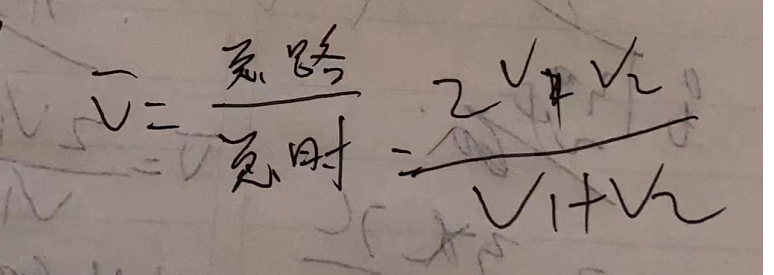 v̄ = 总路 / 总时 = 2V₁V₂ / V₁+V₂